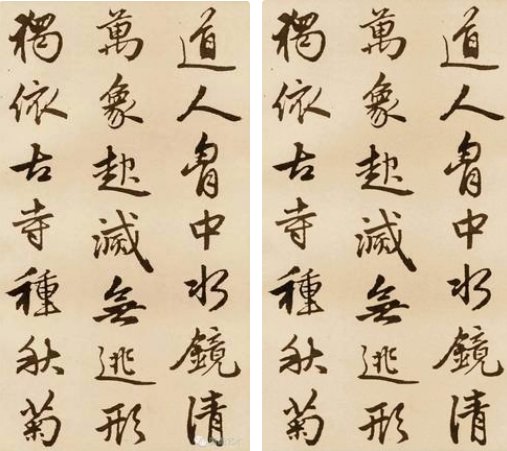 道人胷中水鏡清
萬象起滅無逃形
獨依古寺種秋菊
道人胷中水鏡清
萬象起滅無逃形
獨依古寺種秋菊